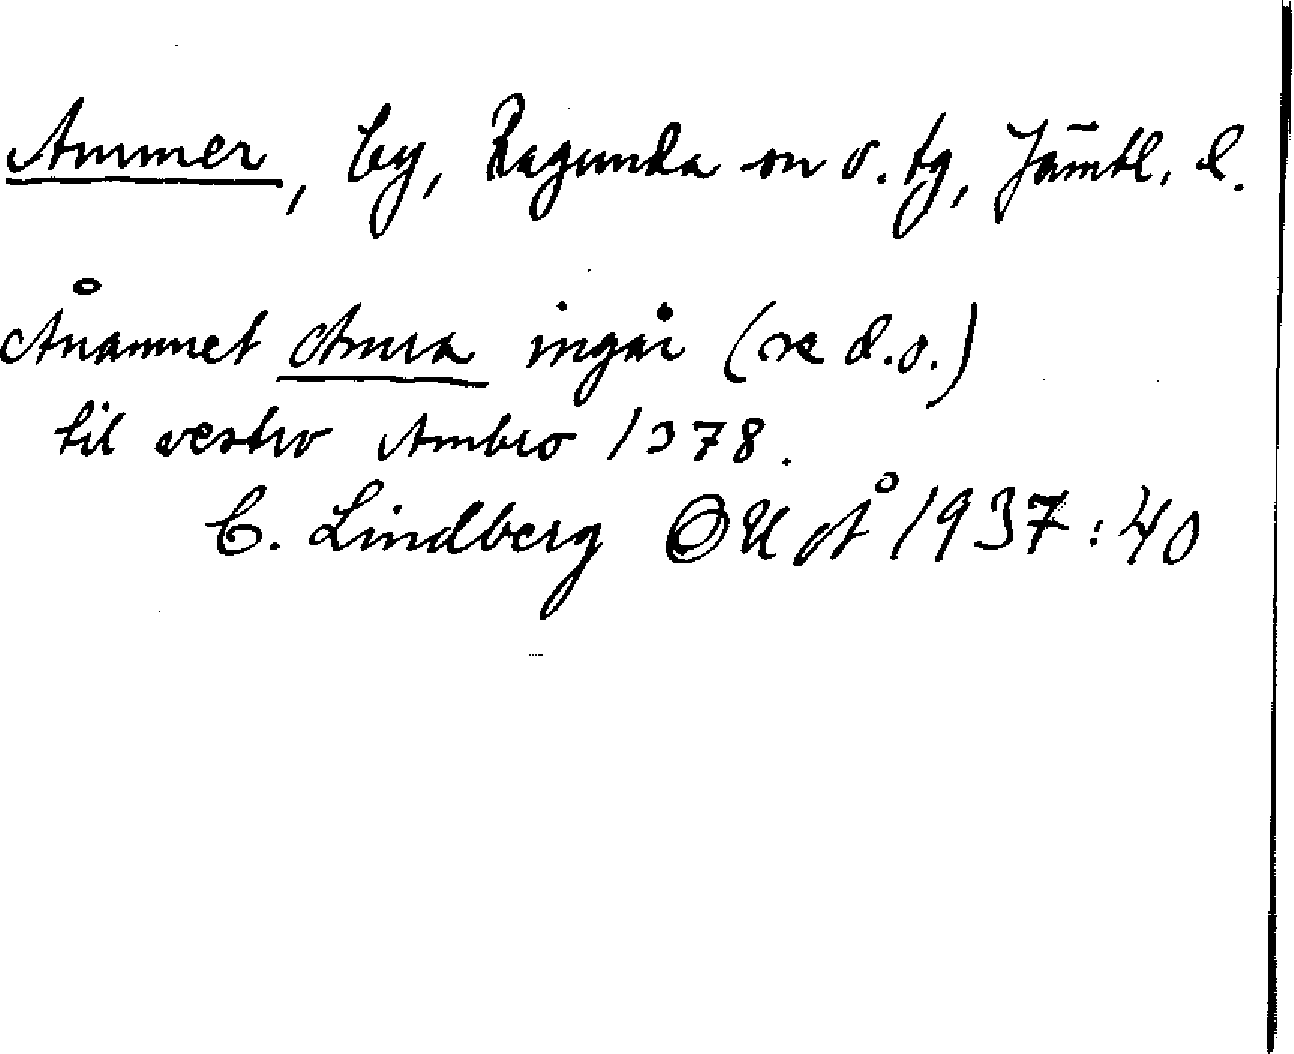 Ammer, by, Ragunda sn o. tg, Jämtl. l.
Ånamnet Amra ingår (se d.o.)
til vestro Ambro 1378.
C. Lindberg OUÅ 1937:40